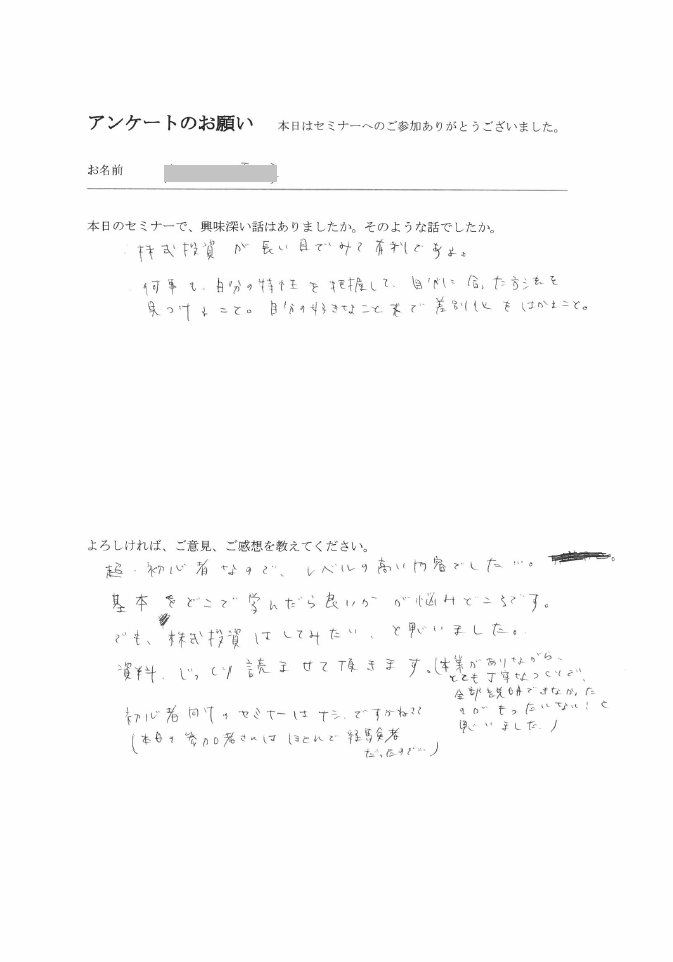 アンケートのお願い　本日はセミナーへのご参加ありがとうございました。
お名前
本日のセミナーで、興味深い話はありましたか。そのような話でしたか。
・株式投資が長い目でみて有利である。
・何事も、自分の特性を把握して、自分に合った方法を
見つけること。自分の好きなことまで差別化をはかること。
よろしければ、ご意見、ご感想を教えてください。
超・初心者なので、レベルの高い内容でした…。
基本をどこで学んだら良いかが悩みどころです。
でも、株式投資はしてみたい、と思いました。
資料、じっくり読ませて頂きます。(本業がありながら、
とても丁寧なつくりで、
全部説明できなかった
のがもったいない！と
思いました。)
初心者向けのセミナーはナシ、ですかね??
(本日の参加者さんはほとんど経験者
だったので…)